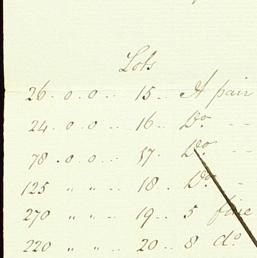 Lots
26 . 0 . 0 .. 15 .. A pair
24 . 0 . 0 .. 16 .. Do. - -
78 . 0 . 0 .. 17 .. Do. - -
125 " " .. 18 .. Do. -
270 " " .. 19 .. 5 fine
220 " " .. 20 .. 8 do.